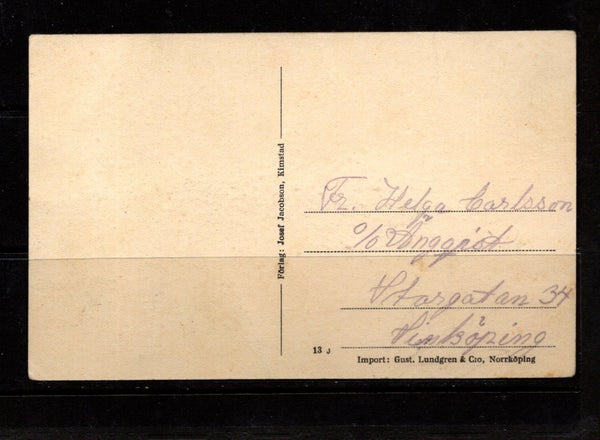 Förlag: Josef Jacobson, Kimstad
Fr. Helga Carlsson
c/o
Storgatan 34
Linköping
13 J
Import: Gust. Lundgren & C:o, Norrköping